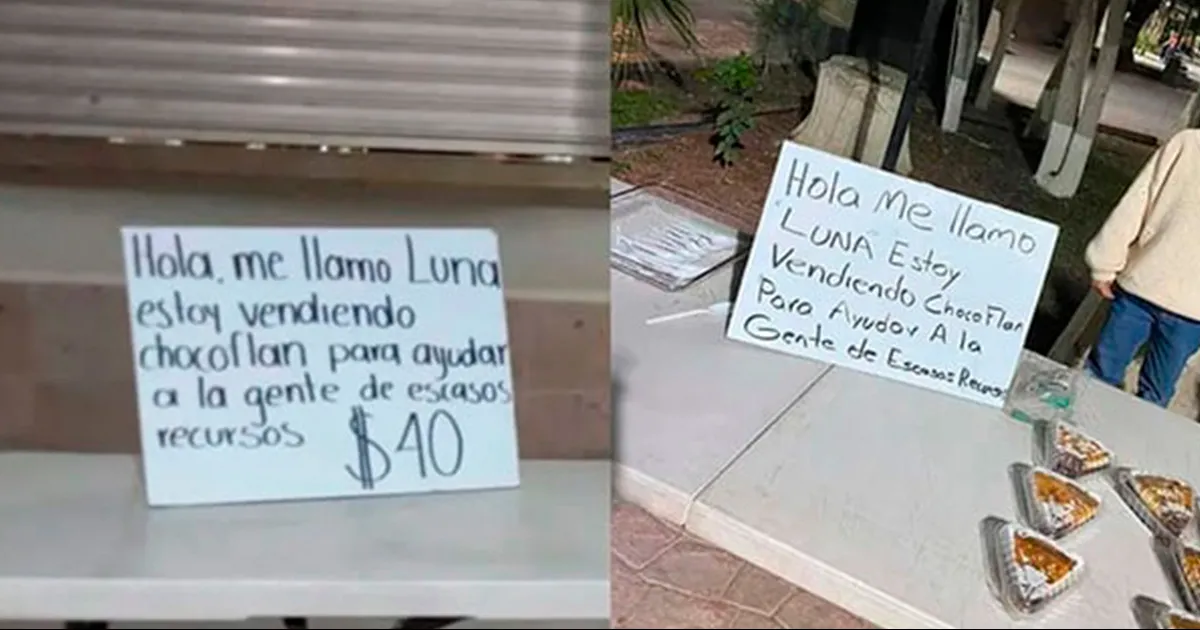 Hola, me llamo Luna
estoy vendiendo
chocoflan para ayudar
a la gente de escasos
recursos $40
Hola Me llamo
LUNA Estoy
Vendiendo ChocoFlan
Para Ayudar A la
Gente de Escasos Recursos